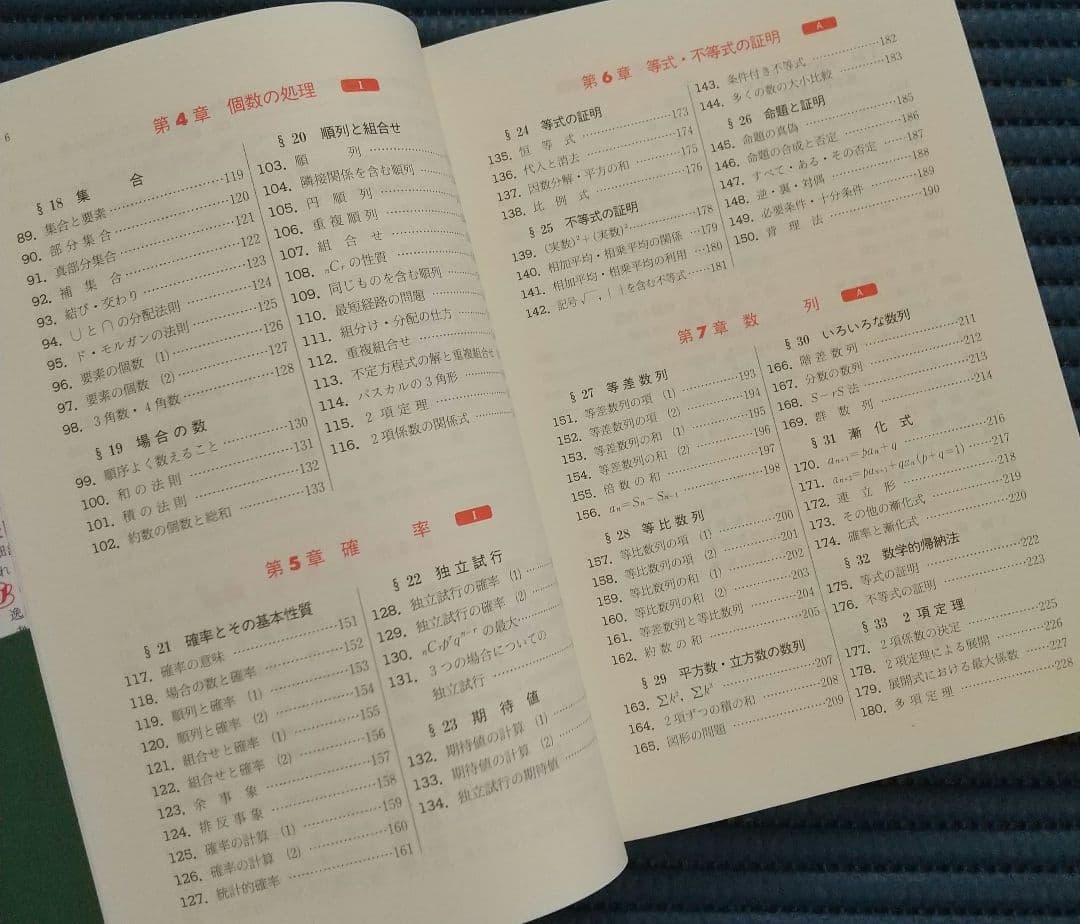 6
第4章 個数の処理 I
§18 集合
89. 集合と要素 119
90. 部分集合 120
91. 真部分集合 121
92. 補集合 122
93. 結び・交わり 123
94. ∪と∩の分配法則 124
95. ド・モルガンの法則 125
96. 要素の個数 (1) 126
97. 要素の個数 (2) 127
98. 3角数・4角数 128
§19 場合の数
99. 順序よく数えること 130
100. 和の法則 131
101. 積の法則 132
102. 約数の個数と総和 133
§20 順列と組合せ
103. 順列
104. 隣接関係を含む順列
105. 円順列
106. 重複順列
107. 組合せ
108. nCrの性質
109. 同じものを含む順列
110. 最短経路の問題
111. 組分け・分配の仕方
112. 重複組合せ
113. 不定方程式の解と重複組合せ
114. パスカルの3角形
115. 2項定理
116. 2項係数の関係式
第5章 確率 I
§21 確率とその基本性質
117. 確率の意味 151
118. 場合の数と確率 152
119. 順列と確率 (1) 153
120. 順列と確率 (2) 154
121. 組合せと確率 (1) 155
122. 組合せと確率 (2) 156
123. 余事象 157
124. 排反事象 158
125. 確率の計算 (1) 159
126. 確率の計算 (2) 160
127. 統計的確率 161
§22 独立試行
128. 独立試行の確率 (1)
129. 独立試行の確率 (2)
130. nCrp^rq^{n-r}の最大
131. 3つの場合についての
独立試行
§23 期待値
132. 期待値の計算 (1)
133. 期待値の計算 (2)
134. 独立試行の期待値
第6章 等式・不等式の証明 A
§24 等式の証明
135. 恒等式 173
136. 代入と消去 174
137. 因数分解・平方の和 175
138. 比例式 176
§25 不等式の証明
139. (実数)²+(実数)² 178
140. 相加平均・相乗平均の関係 179
141. 相加平均・相乗平均の利用 180
142. 記号√ , | |を含む不等式 181
143. 条件付き不等式 182
144. 多くの数の大小比較 183
§26 命題と証明
145. 命題の真偽 185
146. 命題の合成と否定 186
147. すべて・ある・その否定 187
148. 逆・裏・対偶 188
149. 必要条件・十分条件 189
150. 背理法 190
第7章 数列 A
§27 等差数列
151. 等差数列の項 (1) 193
152. 等差数列の項 (2) 194
153. 等差数列の和 (1) 195
154. 等差数列の和 (2) 196
155. 倍数の和 197
156. an=Sn-Sn-1 198
§28 等比数列
157. 等比数列の項 (1) 200
158. 等比数列の項 (2) 201
159. 等比数列の和 (1) 202
160. 等比数列の和 (2) 203
161. 等差数列と等比数列 204
162. 約数の和 205
§29 平方数・立方数の数列
163. Σk², Σk³ 207
164. 2項ずつの積の和 208
165. 図形の問題 209
§30 いろいろな数列
166. 階差数列 211
167. 分数の数列 212
168. S-rS法 213
169. 群数列 214
§31 漸化式
170. an+1=pan+q 216
171. an+2=pan+1+qan(p+q=1) 217
172. 連立形 218
173. その他の漸化式 219
174. 確率と漸化式 220
§32 数学的帰納法
175. 等式の証明 222
176. 不等式の証明 223
§33 2項定理
177. 2項係数の決定 225
178. 2項定理による展開 226
179. 展開式における最大係数 227
180. 多項定理 228